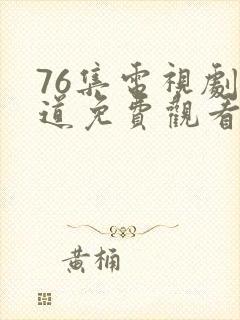 76集電視劇
道免費觀看
黃桶